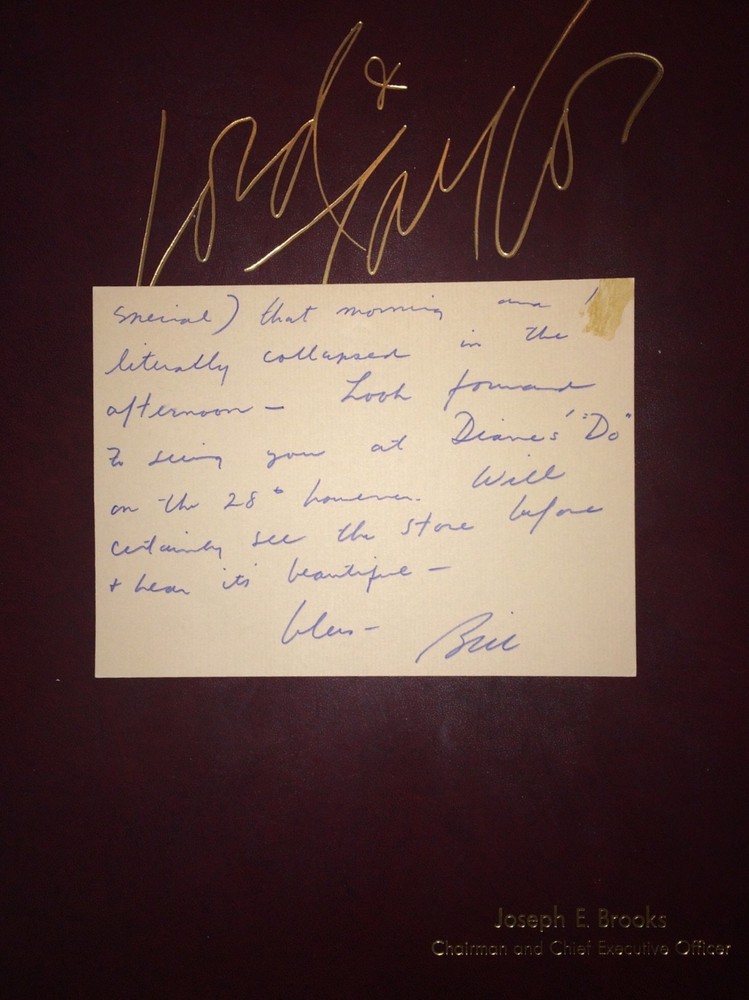 Lord & Taylor
special) that morning and I
literally collapsed in the
afternoon — Look forward
to seeing you at Diane's "Do"
on the 28th however. Will
certainly see the store before
+ hear its beautiful —
bless — Bill
Joseph E. Brooks
Chairman and Chief Executive Officer